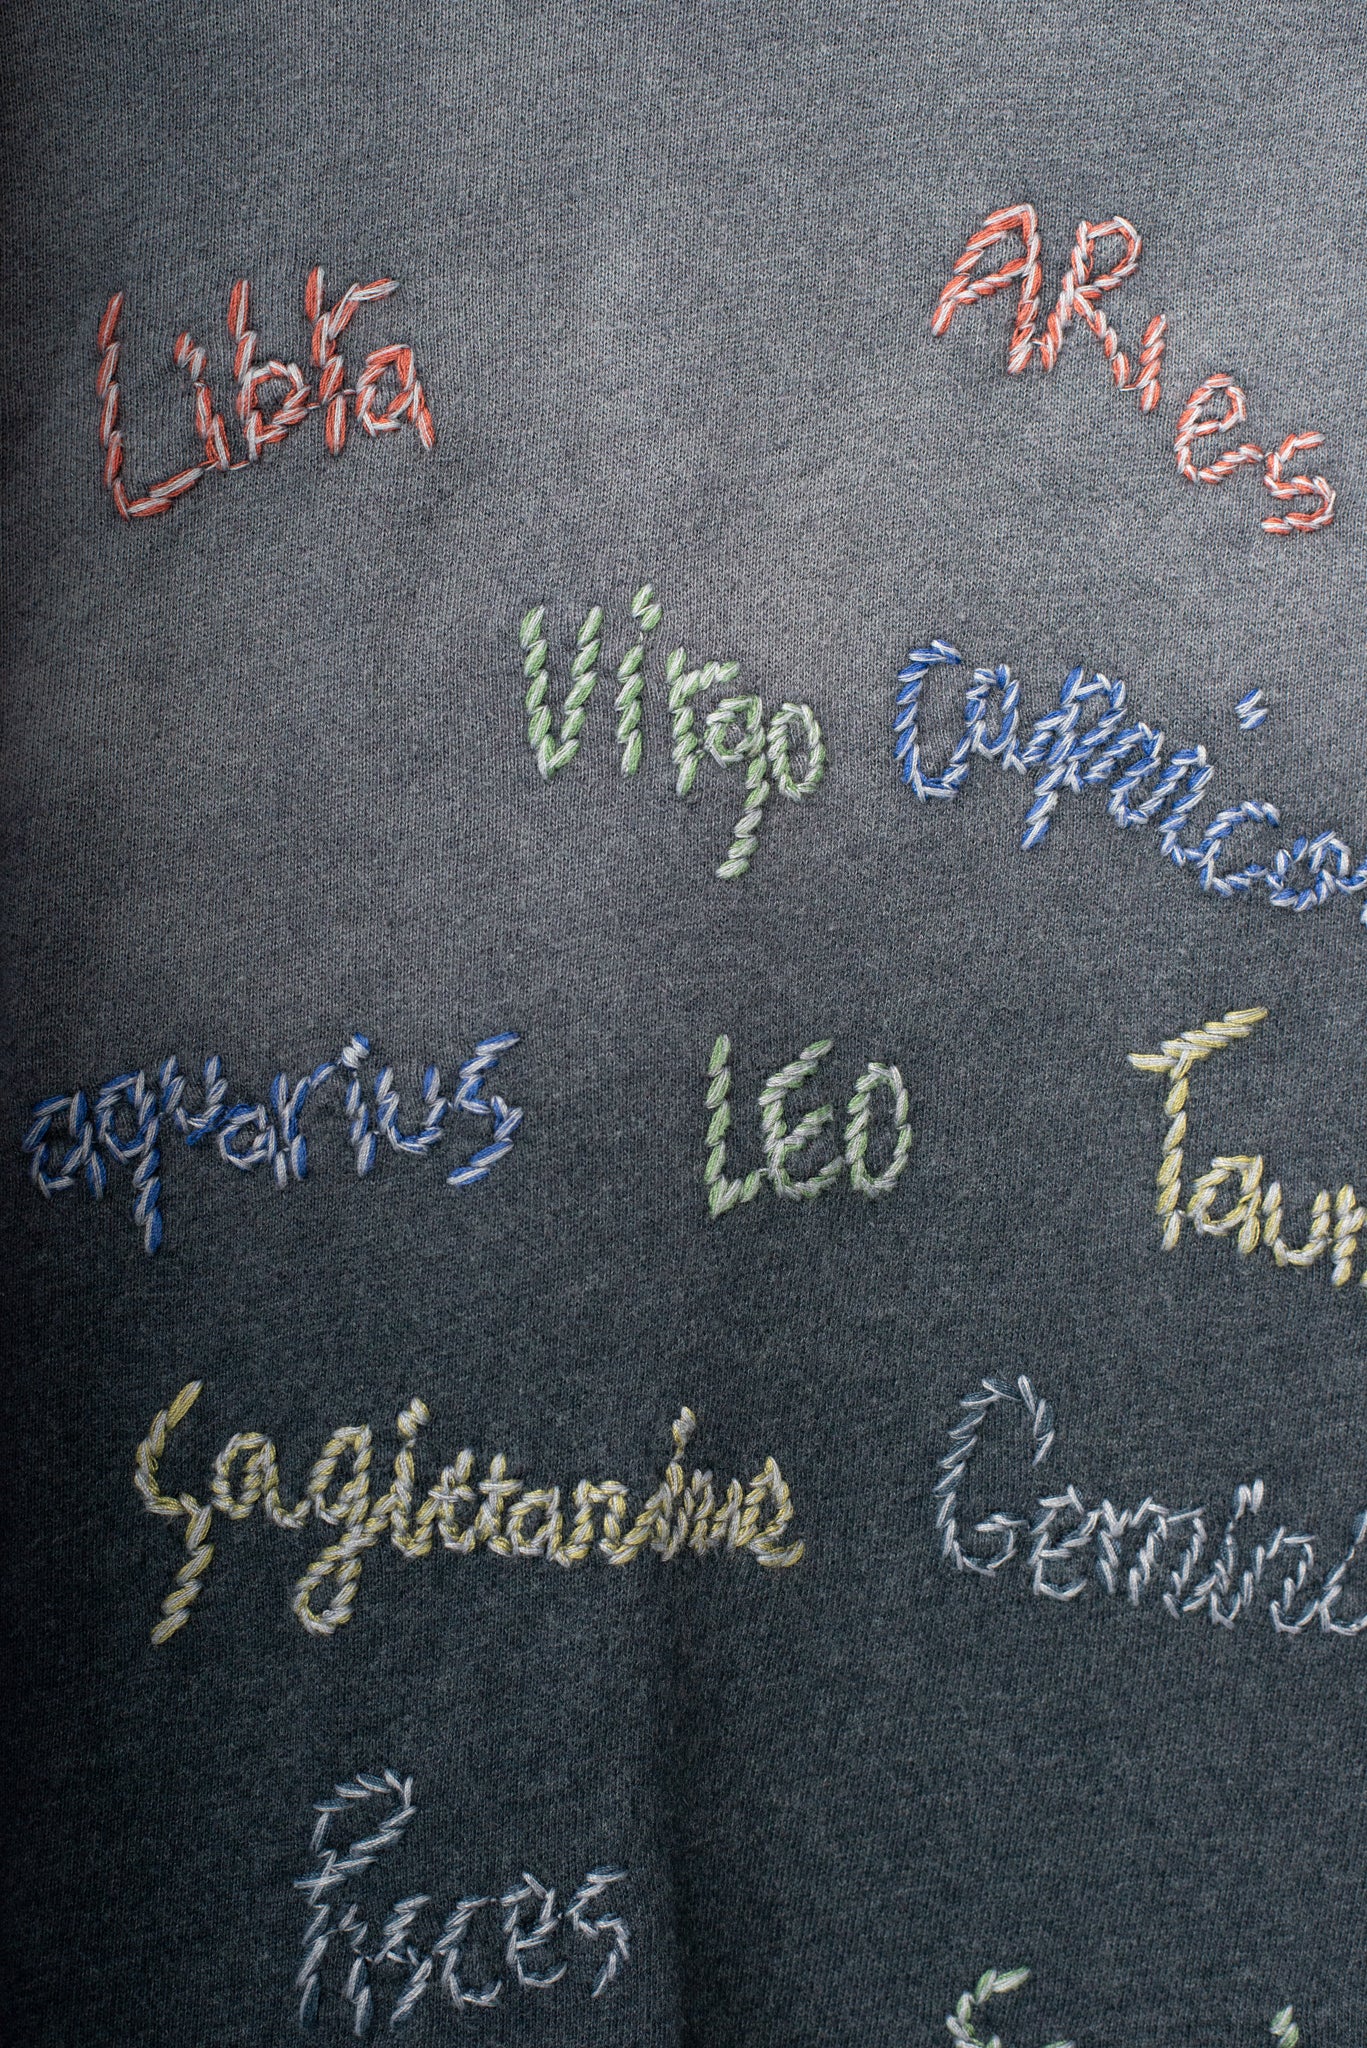 Libra
ARies
Virgo
Caprico
aquarius
LEO
Taur
Sagittarius
Gemini
Pisces